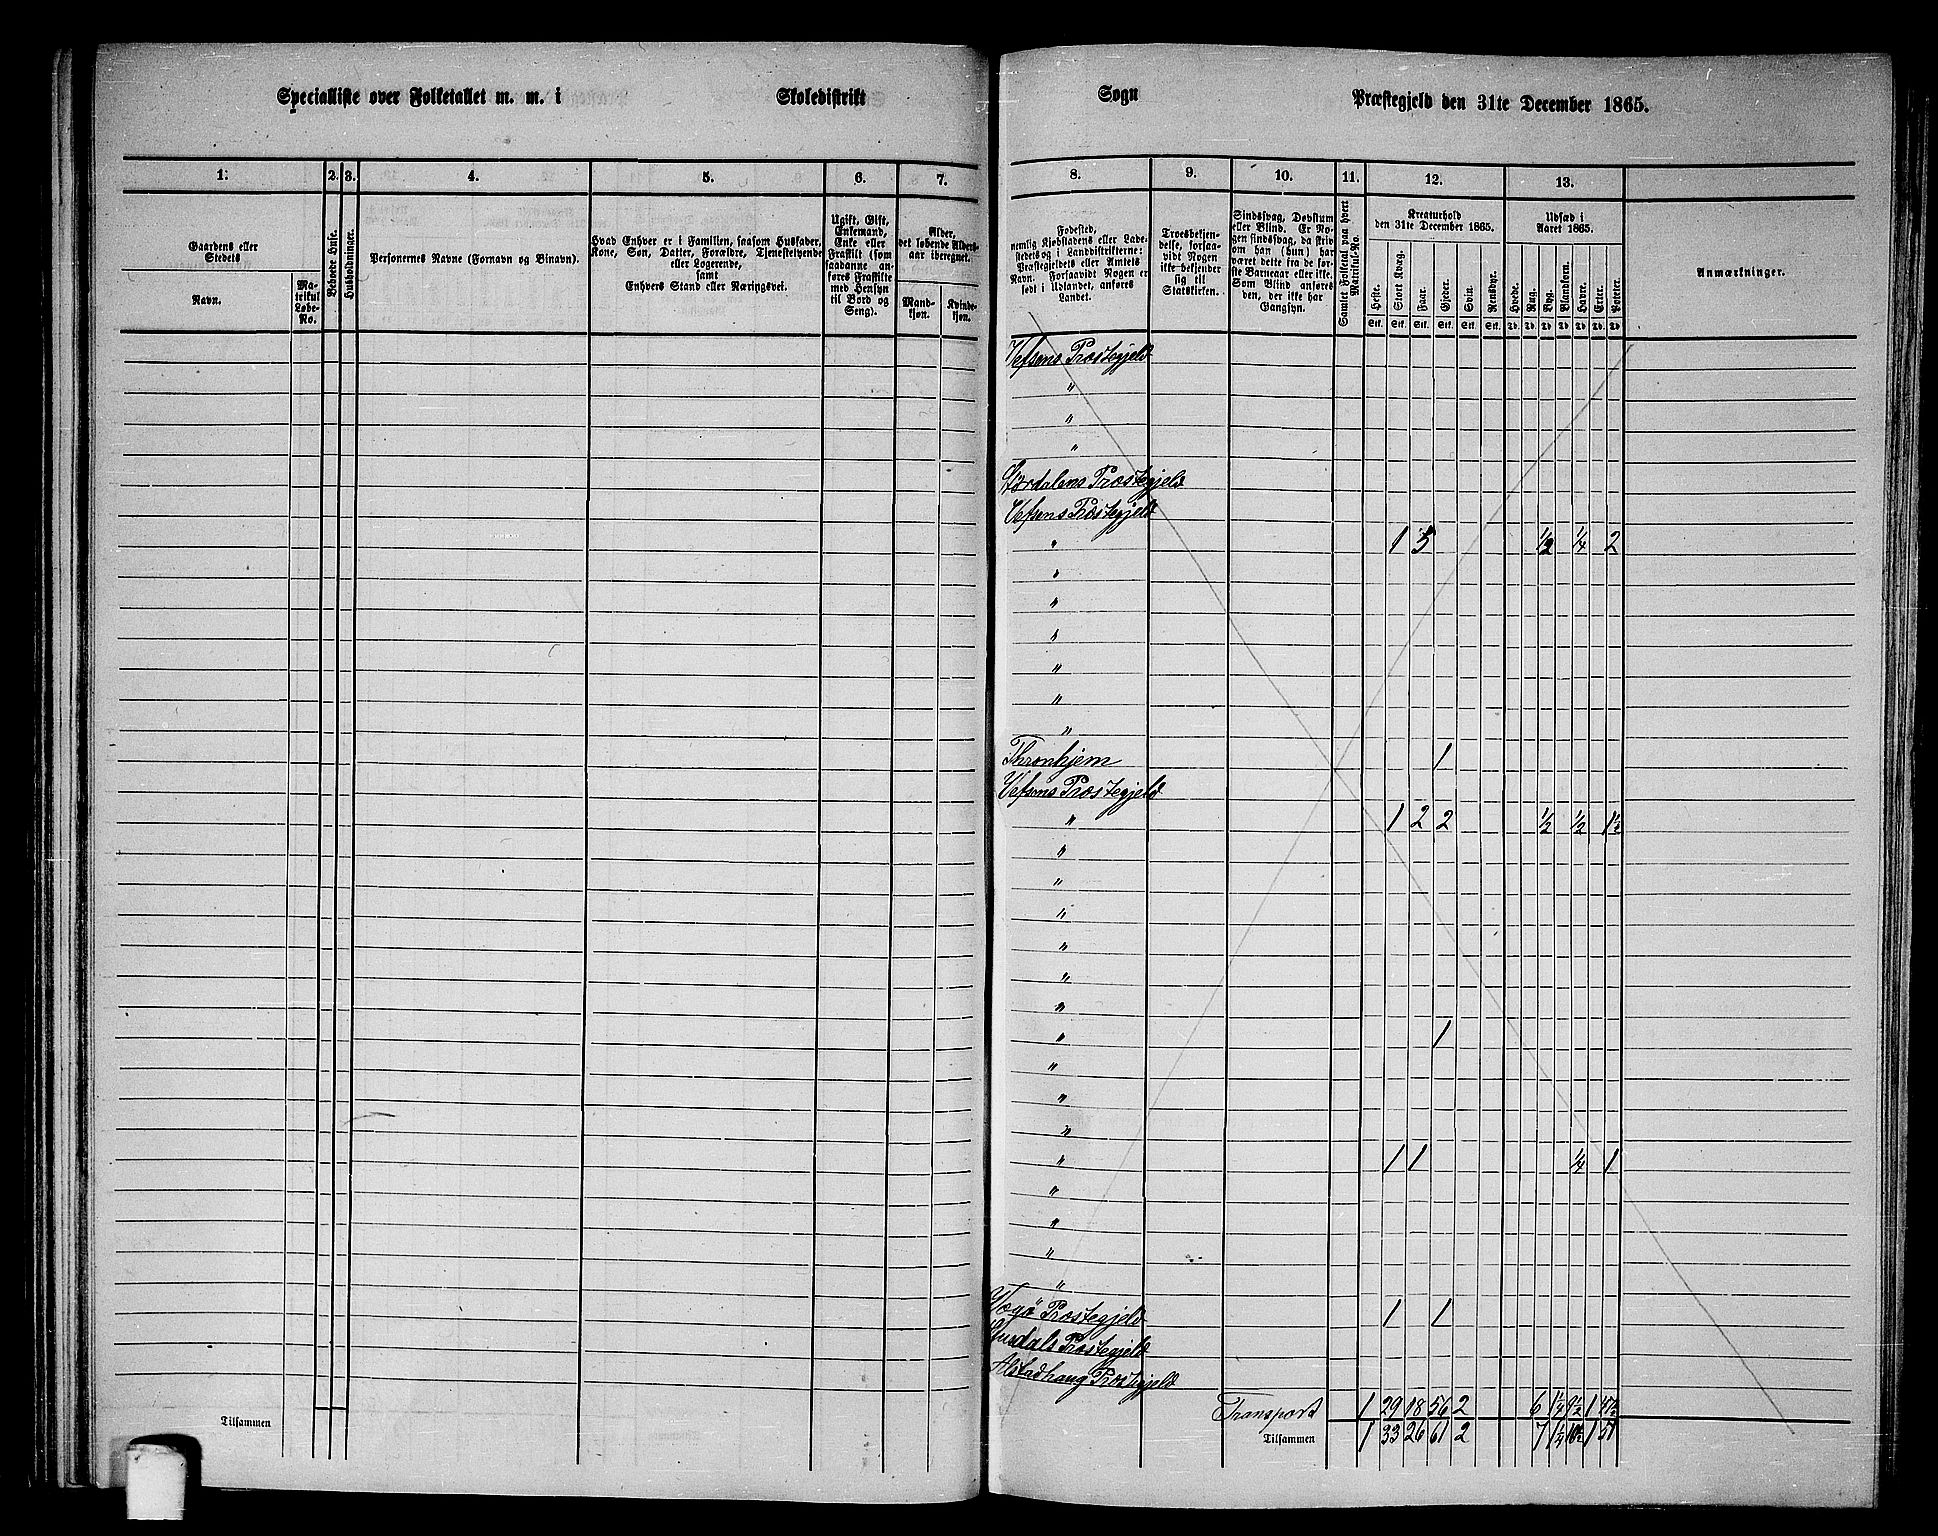 Specialliste over Folketallet m. m. i Skoledistrikt
1. 2. 3. 4. 5. 6. 7.
Gaardens eller Stedets
Navn.
Matrikul Løbe-No.
Beboede Huse.
Husholdninger.
Personernes Navne (Fornavn og Binavn).
Hvad Enhver er i Familien, saasom Husfader,
Kone, Søn, Datter, Forældre, Tjenestetyende
eller Logerende,
samt
Enhvers Stand eller Næringsvei.
Ugift, Gift,
Enkemand,
Enke eller
Fraskilt (som
saadanne an-
føres Fraskilte
med Hensyn
til Bord og
Seng).
Alder,
det løbende Alders-
aar iberegnet.
Mand-
kjøn.
Kvinde-
kjøn.
Tilsammen
Sogn Præstegjeld den 31te December 1865.
8. 9. 10. 11. 12. 13.
Fødested,
nemlig Kjøbstadens eller Lade-
stedets og i Landdistrikterne:
Præstegjeldets eller Amtets
Navn. Forsaavidt Nogen er
født i Udlandet, anføres
Landet.
Troesbekjen-
delse, forsaa-
vidt Nogen
ikke bekjender
sig til
Statskirken.
Sindssvag, Døvstum
eller Blind. Er No-
gen sindssvag, da skriv
om han (hun) har
været dette fra de før-
ste Barneaar eller ikke.
Som Blind anføres
den, der ikke har
Gangsyn.
Samlet Folketal paa hvert
Matrikul-No.
Kreaturhold
den 31te December 1865.
Heste. Stort Kvæg. Faar. Gjeder. Svin. Rensdyr.
Stk. Stk. Stk. Stk. Stk. Stk.
Udsæd i
Aaret 1865.
Hvede. Rug. Byg. Blandkorn. Havre. Erter. Poteter.
Anmærkninger.
Vefsens Præstegjeld
"
"
"
Størdalens Præstegjeld
Vefsens Præstegjeld
" 1 5 1/2 1/4 2
"
"
"
"
"
"
Thronhjem 1
Vefsens Præstegjeld
" 1 2 2 1/2 1/2 1½
"
"
"
"
"
"
" 1
"
"
"
" 1 1 1/4 1
"
"
"
"
Vegø Præstegjeld 1 1
Præstegjeld
Alstadhaug Præstegjeld
Transport 1 29 18 56 2 6 1¼ 1
Tilsammen 1 33 26 61 2 7 1¼ 1 51